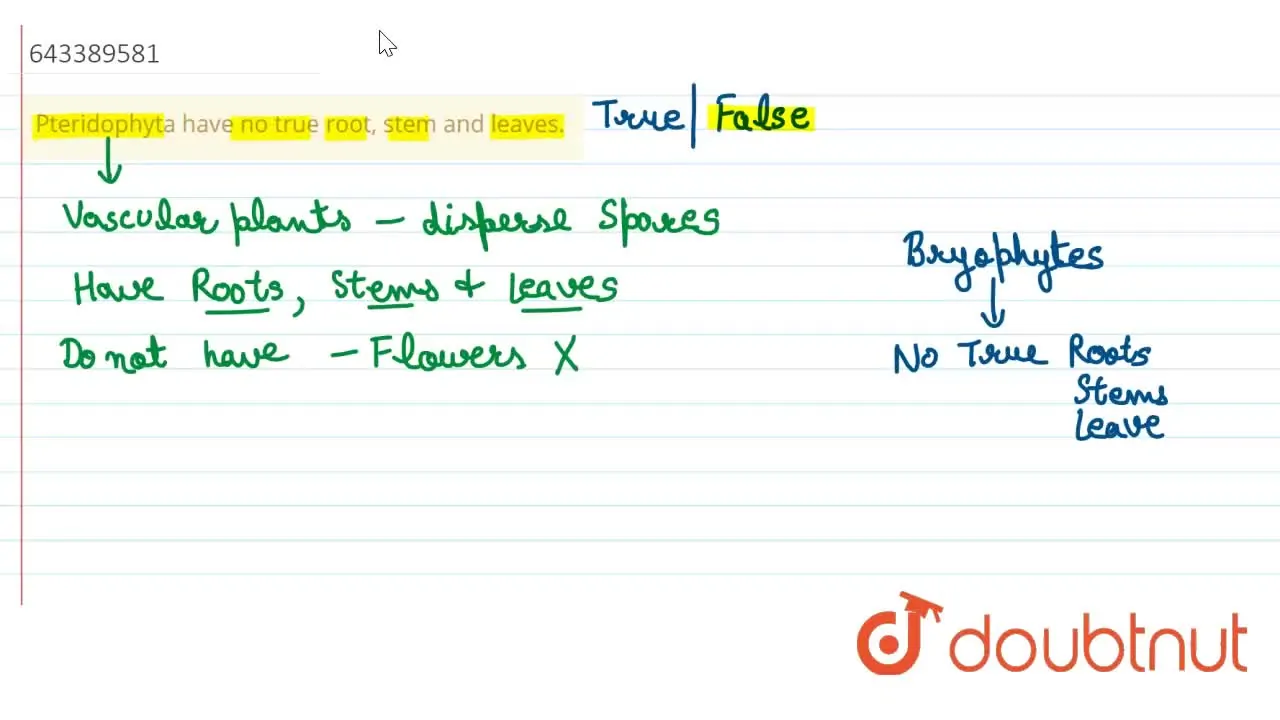 643389581
Pteridophyta have no true root, stem and leaves. True | False
↓
Vascular plants - disperse Spores
Have Roots, Stems & leaves
Do not have - Flowers X
Bryophytes
↓
No True Roots
Stems
leave
doubtnut